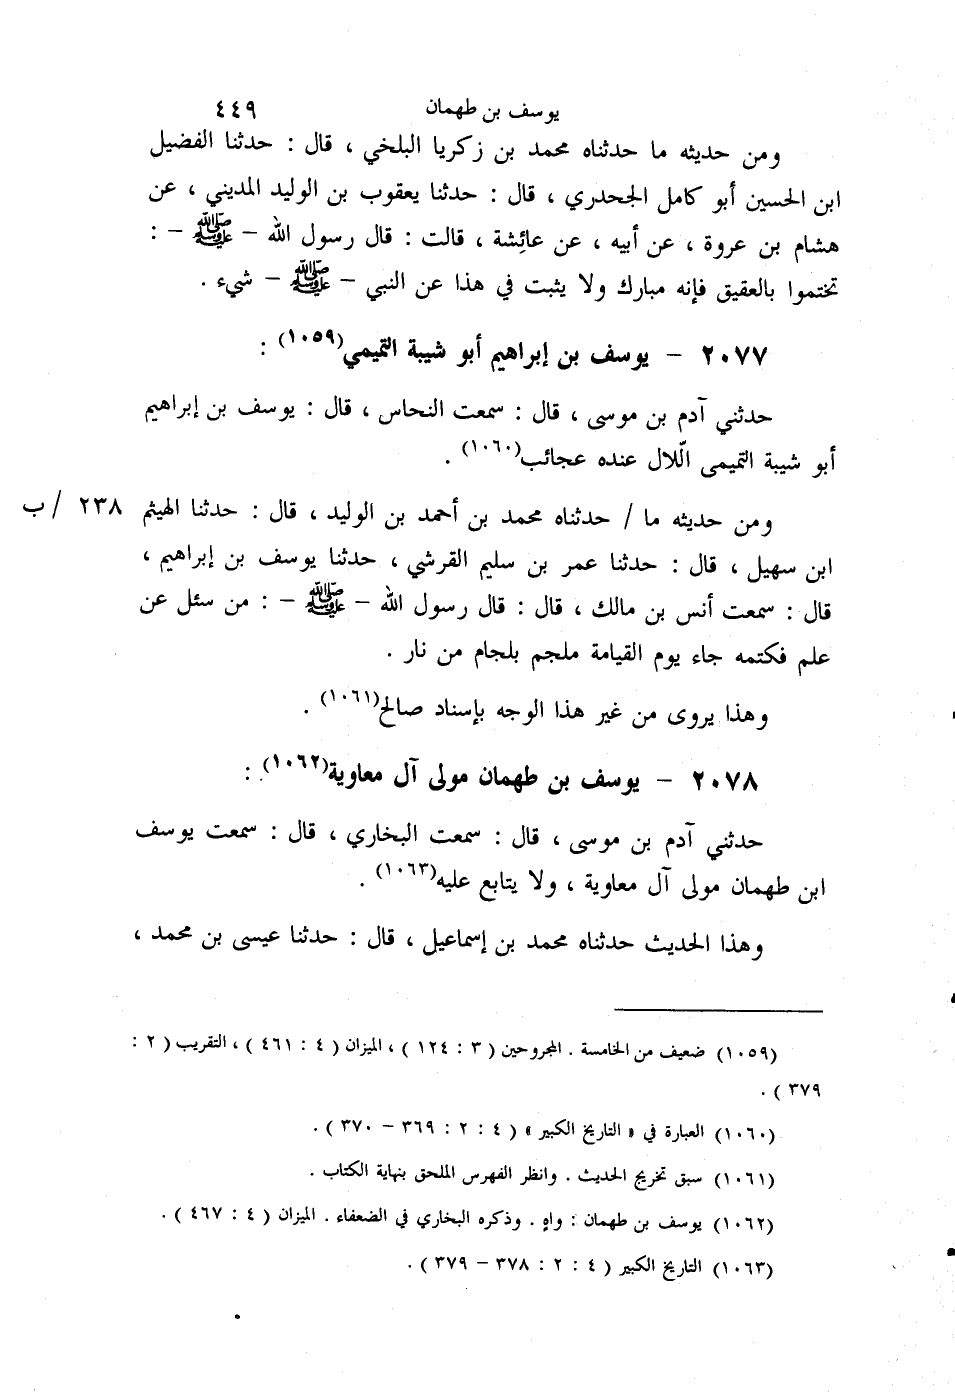 يوسف بن طهمان ٤٤٩
ومن حديثه ما حدثناه محمد بن زكريا البلخي ، قال : حدثنا الفضيل
ابن الحسين أبو كامل الجحدري ، قال : حدثنا يعقوب بن الوليد المديني ، عن
هشام بن عروة ، عن أبيه ، عن عائِشة ، قالت : قال رسول الله – ﷺ – :
تختموا بالعقيق فإنه مبارك ولا يثبت في هذا عن النبي – ﷺ – شيء .
٢٠٧٧ – يوسف بن إبراهيم أبو شيبة التميمي(١٠٥٩) :
حدثني آدم بن موسى ، قال : سمعت النحاس ، قال : يوسف بن إبراهيم
أبو شيبة التميمى الّلال عنده عجائب(١٠٦٠) .
ومن حديثه ما / حدثناه محمد بن أحمد بن الوليد ، قال : حدثنا الهيثم ٢٣٨ / ب
ابن سهيل ، قال : حدثنا عمر بن سليم القرشي ، حدثنا يوسف بن إبراهيم ،
قال : سمعت أنس بن مالك ، قال : قال رسول الله – ﷺ – : من سئل عن
علم فكتمه جاء يوم القيامة ملجم بلجام من نار .
وهذا يروى من غير هذا الوجه بإسناد صالح(١٠٦١) .
٢٠٧٨ – يوسف بن طهمان مولى آل معاوية(١٠٦٢) :
حدثني آدم بن موسى ، قال : سمعت البخاري ، قال : سمعت يوسف
ابن طهمان مولى آل معاوية ، ولا يتابع عليه(١٠٦٣) .
وهذا الحديث حدثناه محمد بن إسماعيل ، قال : حدثنا عيسى بن محمد ،
(١٠٥٩) ضعيف من الخامسة . المجروحين ( ٣ : ١٢٤ ) ، الميزان ( ٤ : ٤٦١ ) ، التقريب ( ٢ :
٣٧٩ ) .
(١٠٦٠) العبارة في « التاريخ الكبير » ( ٤ : ٢ : ٣٦٩ – ٣٧٠ ) .
(١٠٦١) سبق تخريج الحديث . وانظر الفهرس الملحق بنهاية الكتاب .
(١٠٦٢) يوسف بن طهمان : واهٍ . وذكره البخاري في الضعفاء . الميزان ( ٤ : ٤٦٧ ) .
(١٠٦٣) التاريخ الكبير ( ٤ : ٢ : ٣٧٨ – ٣٧٩ ) .